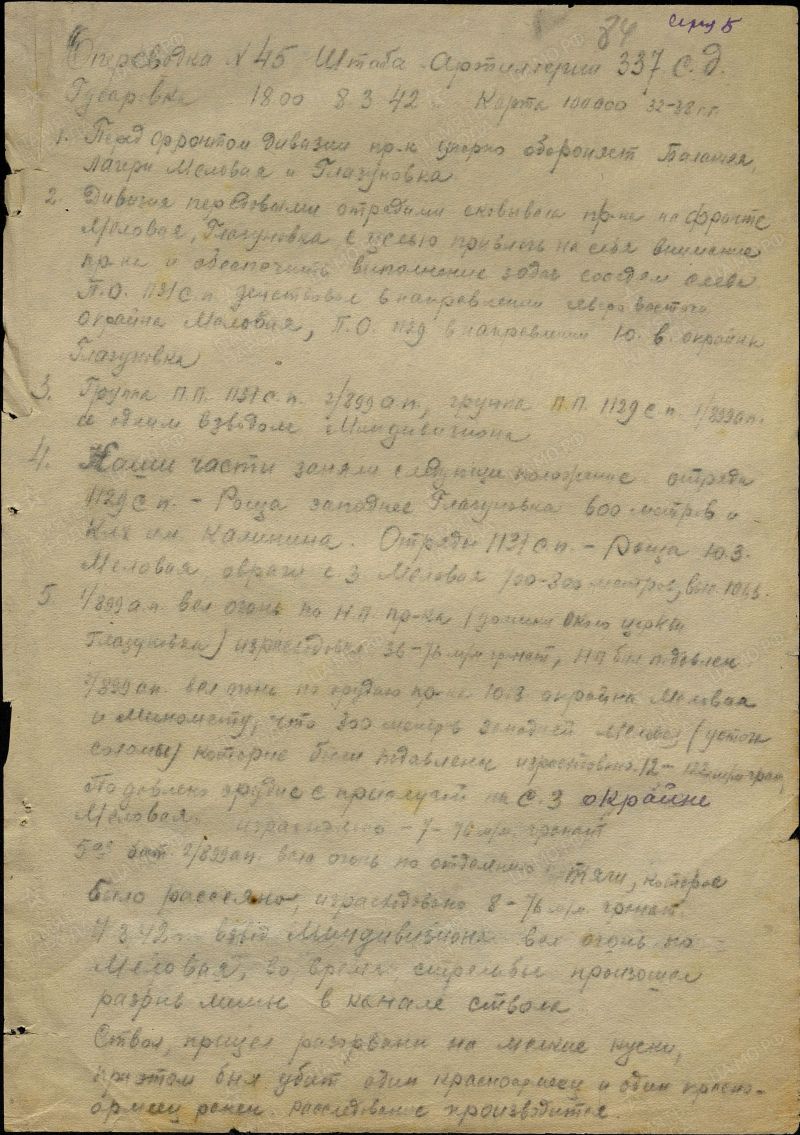 84
Оперсводка № 45 Штаба Артиллерии 337 с.д.
Гусаровка 18 00 8 3 42 Карта 100000
1. Перед фронтом дивизии пр-к упорно обороняет
Лагери Меловая и Глазуновка
2. Дивизия передовыми отрядами сковывала пр-ка на фронте
Меловая, Глазуновка с целью привлечь на себя внимание
пр-ка и обеспечить выполнение задач соседом слева
П.О. 1131 с.п. действовал в направлении северо восточн.
окрайна Меловая, П.О. 1129 в направлении Ю. в. окрайна
Глазуновка
3. Группа П.П. 1131 с.п. 2/899 а.п., группа П.П. 1129 с.п. 1/899 а.п.
и одним взводом Миндивизиона
4. Наши части заняли следующие положение отряда
1129 с п. - Роща западнее Глазуновка 600 метров и
Клх им. Калинина. Отряды 1131 с п. - Роща Ю.З.
Меловая, овраги с.з Меловая 700-300 метров, выс.
5 1/899 а.п. вел огонь по Н.П. пр-ка (домики около церкви
Глазуновка) израсходовал 36-76 м/м гранат, НП был подавлен
2/899 а.п. вел огонь по орудию пр-ка Ю.З окрайна Меловая
и Миномету, что 300 метров западней Меловая
соломы) которые были подавлены израсходовано 12 - 122 м/м гран.
Подавлено орудие с прислугой на С. З окрайне
Меловая. израсходовано - 7 - 76 м/м. гранат
5ая бат. 2/899 а.п. вела огонь по отделению тяги, которое
было рассеяно, израсходовано 8 - 76 м/м. гранат.
3 42 взвод Миндивизиона вел огонь по
Меловая, во время стрельбы произошел
разрыв мины в канале ствола
Ствол, прицел разорваны на мелкие куски,
при этом был убит один красноармеец и один красно-
армеец ранен. Расследование производится.